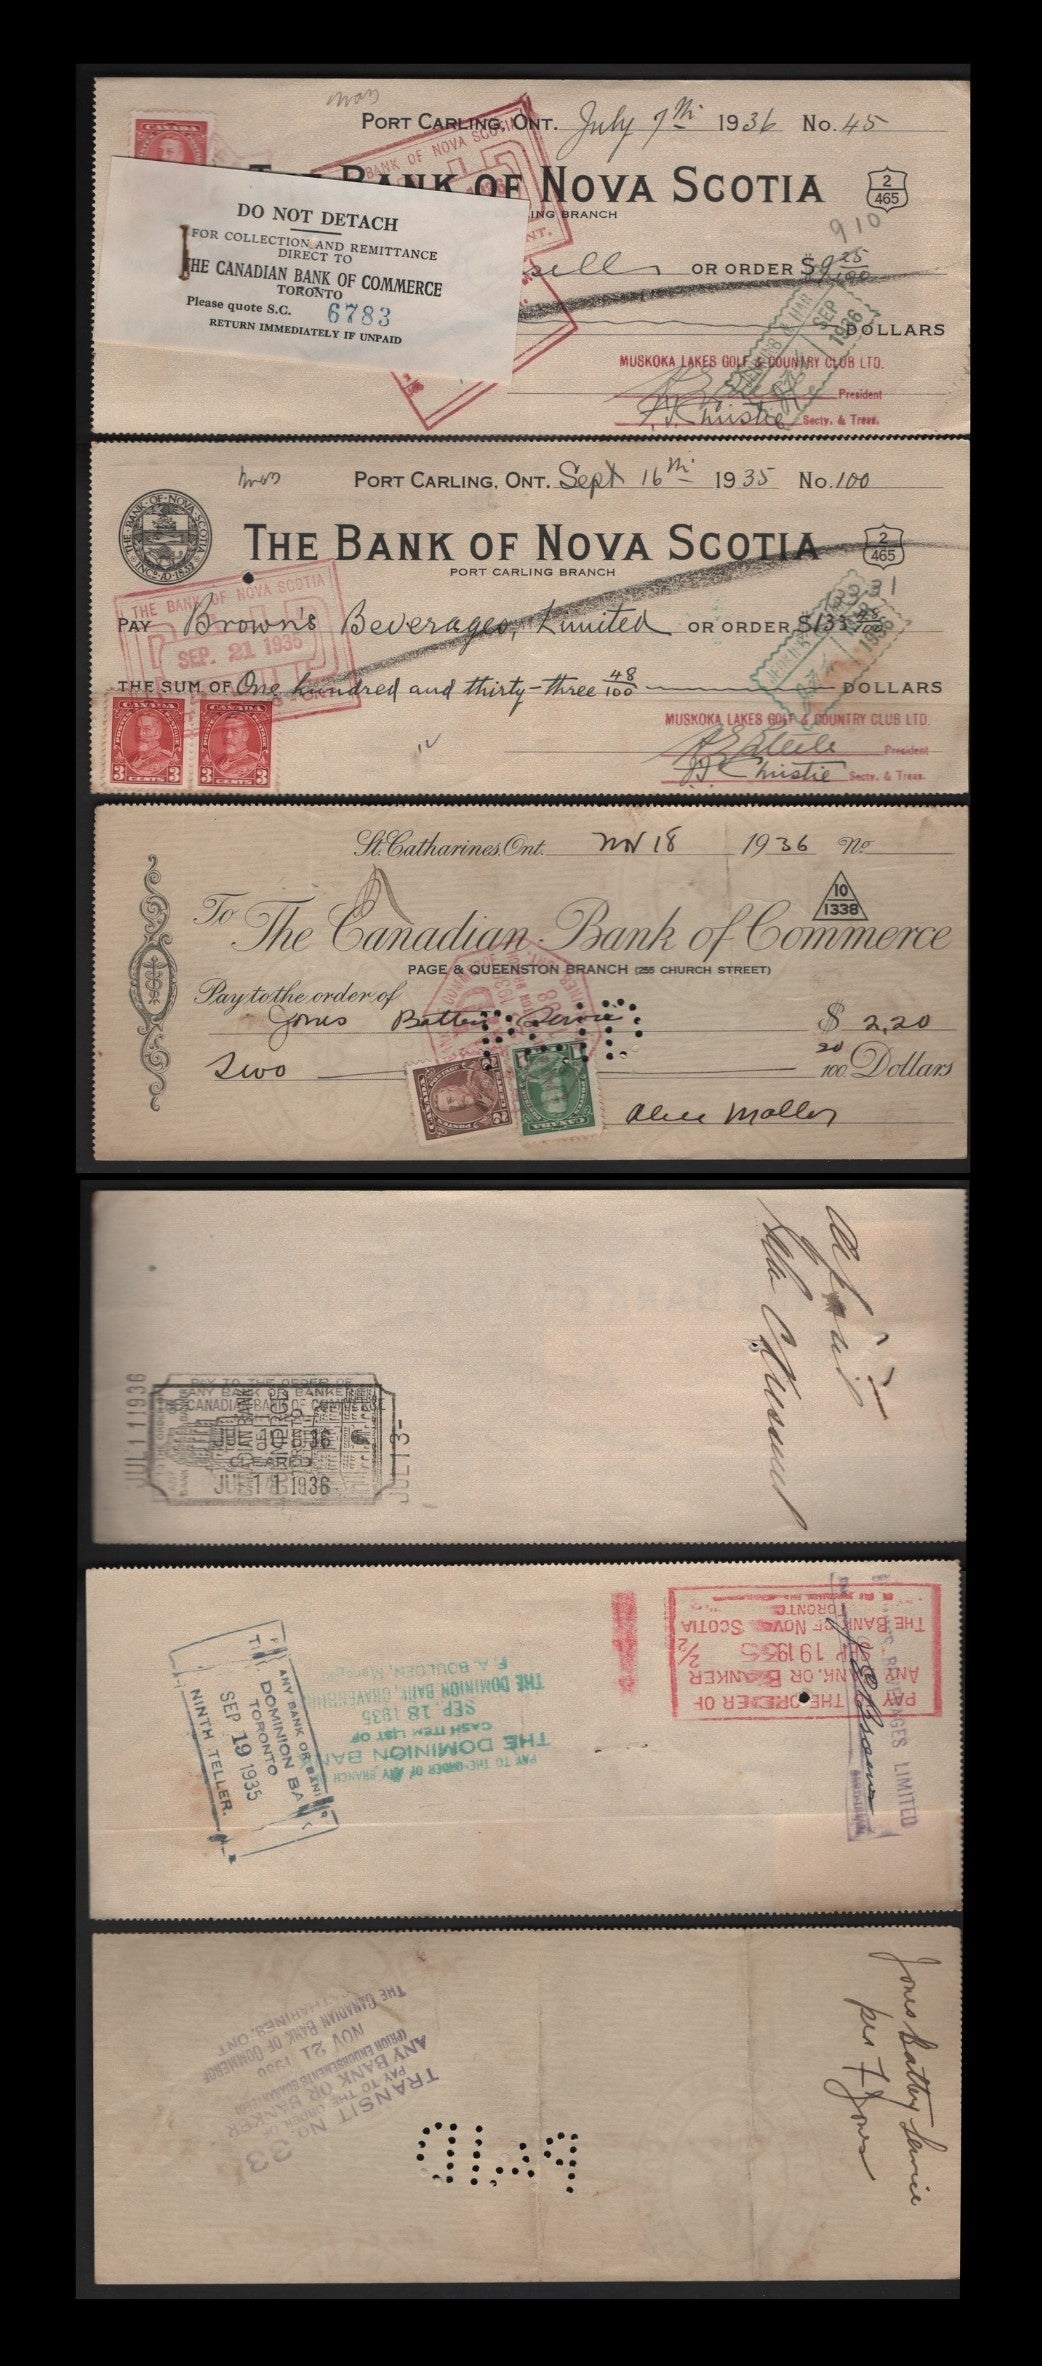 PORT CARLING, ONT. July 7th 1936 No. 45
CANADA
THE BANK OF NOVA SCOTIA
2
465
BRANCH
910
DO NOT DETACH
FOR COLLECTION AND REMITTANCE
DIRECT TO
THE CANADIAN BANK OF COMMERCE
TORONTO
Please quote S.C. 6783
RETURN IMMEDIATELY IF UNPAID
OR ORDER $9 25/100
DOLLARS
SEP 1936
MUSKOKA LAKES GOLF & COUNTRY CLUB LTD.
President
Christie Secty. & Treas.
PORT CARLING, ONT. Sept 16th 1935 No. 100
THE BANK OF NOVA SCOTIA INCD A.D. 1832
THE BANK OF NOVA SCOTIA
2
465
PORT CARLING BRANCH
THE BANK OF NOVA SCOTIA
PAID
SEP. 21 1935
PAY Brown's Beverages, Limited OR ORDER $133 48/100
THE SUM OF One hundred and thirty-three 48/100 DOLLARS
CANADA POSTES POSTAGE 3 CENTS 3
CANADA POSTES POSTAGE 3 CENTS 3
MUSKOKA LAKES GOLF & COUNTRY CLUB LTD.
President
Christie Secty. & Treas.
St. Catharines, Ont. Nov 18 1936 No
10
1338
To The Canadian Bank of Commerce
PAGE & QUEENSTON BRANCH (255 CHURCH STREET)
Pay to the order of
Jones Battery Service $ 2.20
PAID
Two 20/100 Dollars
CANADA
CANADA
PAY TO THE ORDER OF
ANY BANK OR BANKER
THE CANADIAN BANK OF COMMERCE
CLEARED
JUL 11 1936
JUL 11 1936
JUL 13
PAY TO THE ORDER OF
ANY BANK, OR BANKER
SEP 19 1935
THE BANK OF NOVA SCOTIA
TORONTO
BEVERAGES LIMITED
PAY TO THE ORDER OF ANY BRANCH
THE DOMINION BANK
CASH ITEM LIST OF
SEP 18 1935
THE DOMINION BANK, GRAVENHURST
F. A. BOULDEN, Manager
ANY BANK OR BANKER
DOMINION BANK
TORONTO
SEP 19 1935
NINTH TELLER.
TRANSIT NO. 33
PAY TO THE ORDER OF
ANY BANK OR BANKER
(PRIOR ENDORSEMENTS GUARANTEED)
NOV 21 1936
THE CANADIAN BANK OF COMMERCE
ST. CATHARINES, ONT.
PAID
Jones Battery Service
per F Jones